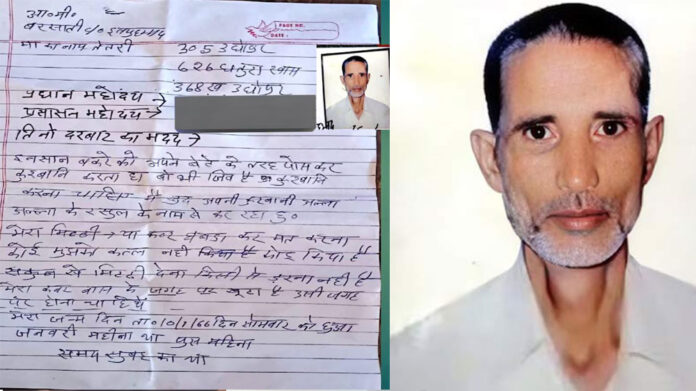 PAGE NO.
DATE :
माँ का नाम तेतरी
प्रधान महोदय →
प्रसासन महोदय →
दरबार का मदद →
इनसान बकरे को अपने बेटे के तरह पोस कर
कुरबानि करता है वो भी जिव है कुरबानि
करना चाहिए में खुद अपनी कुरबानी अल्ला
अल्ला के रसुल के नाम से कर रहा हु
मेरा मिट्टी या कबर घबड़ा कर मत करना
कोई मुझको कतल नही किया है
सकुन से मिट्टी देना किसी से डरना नही है
मेरा कबर के जगह पर खूटा है उसी जगह
पर होना चाहिये
मेरा जन्म दिन ता० 10/1/66 दिन सोमबार को हुआ
जनवरी महीना था पुस महिना
समय सुबह का था